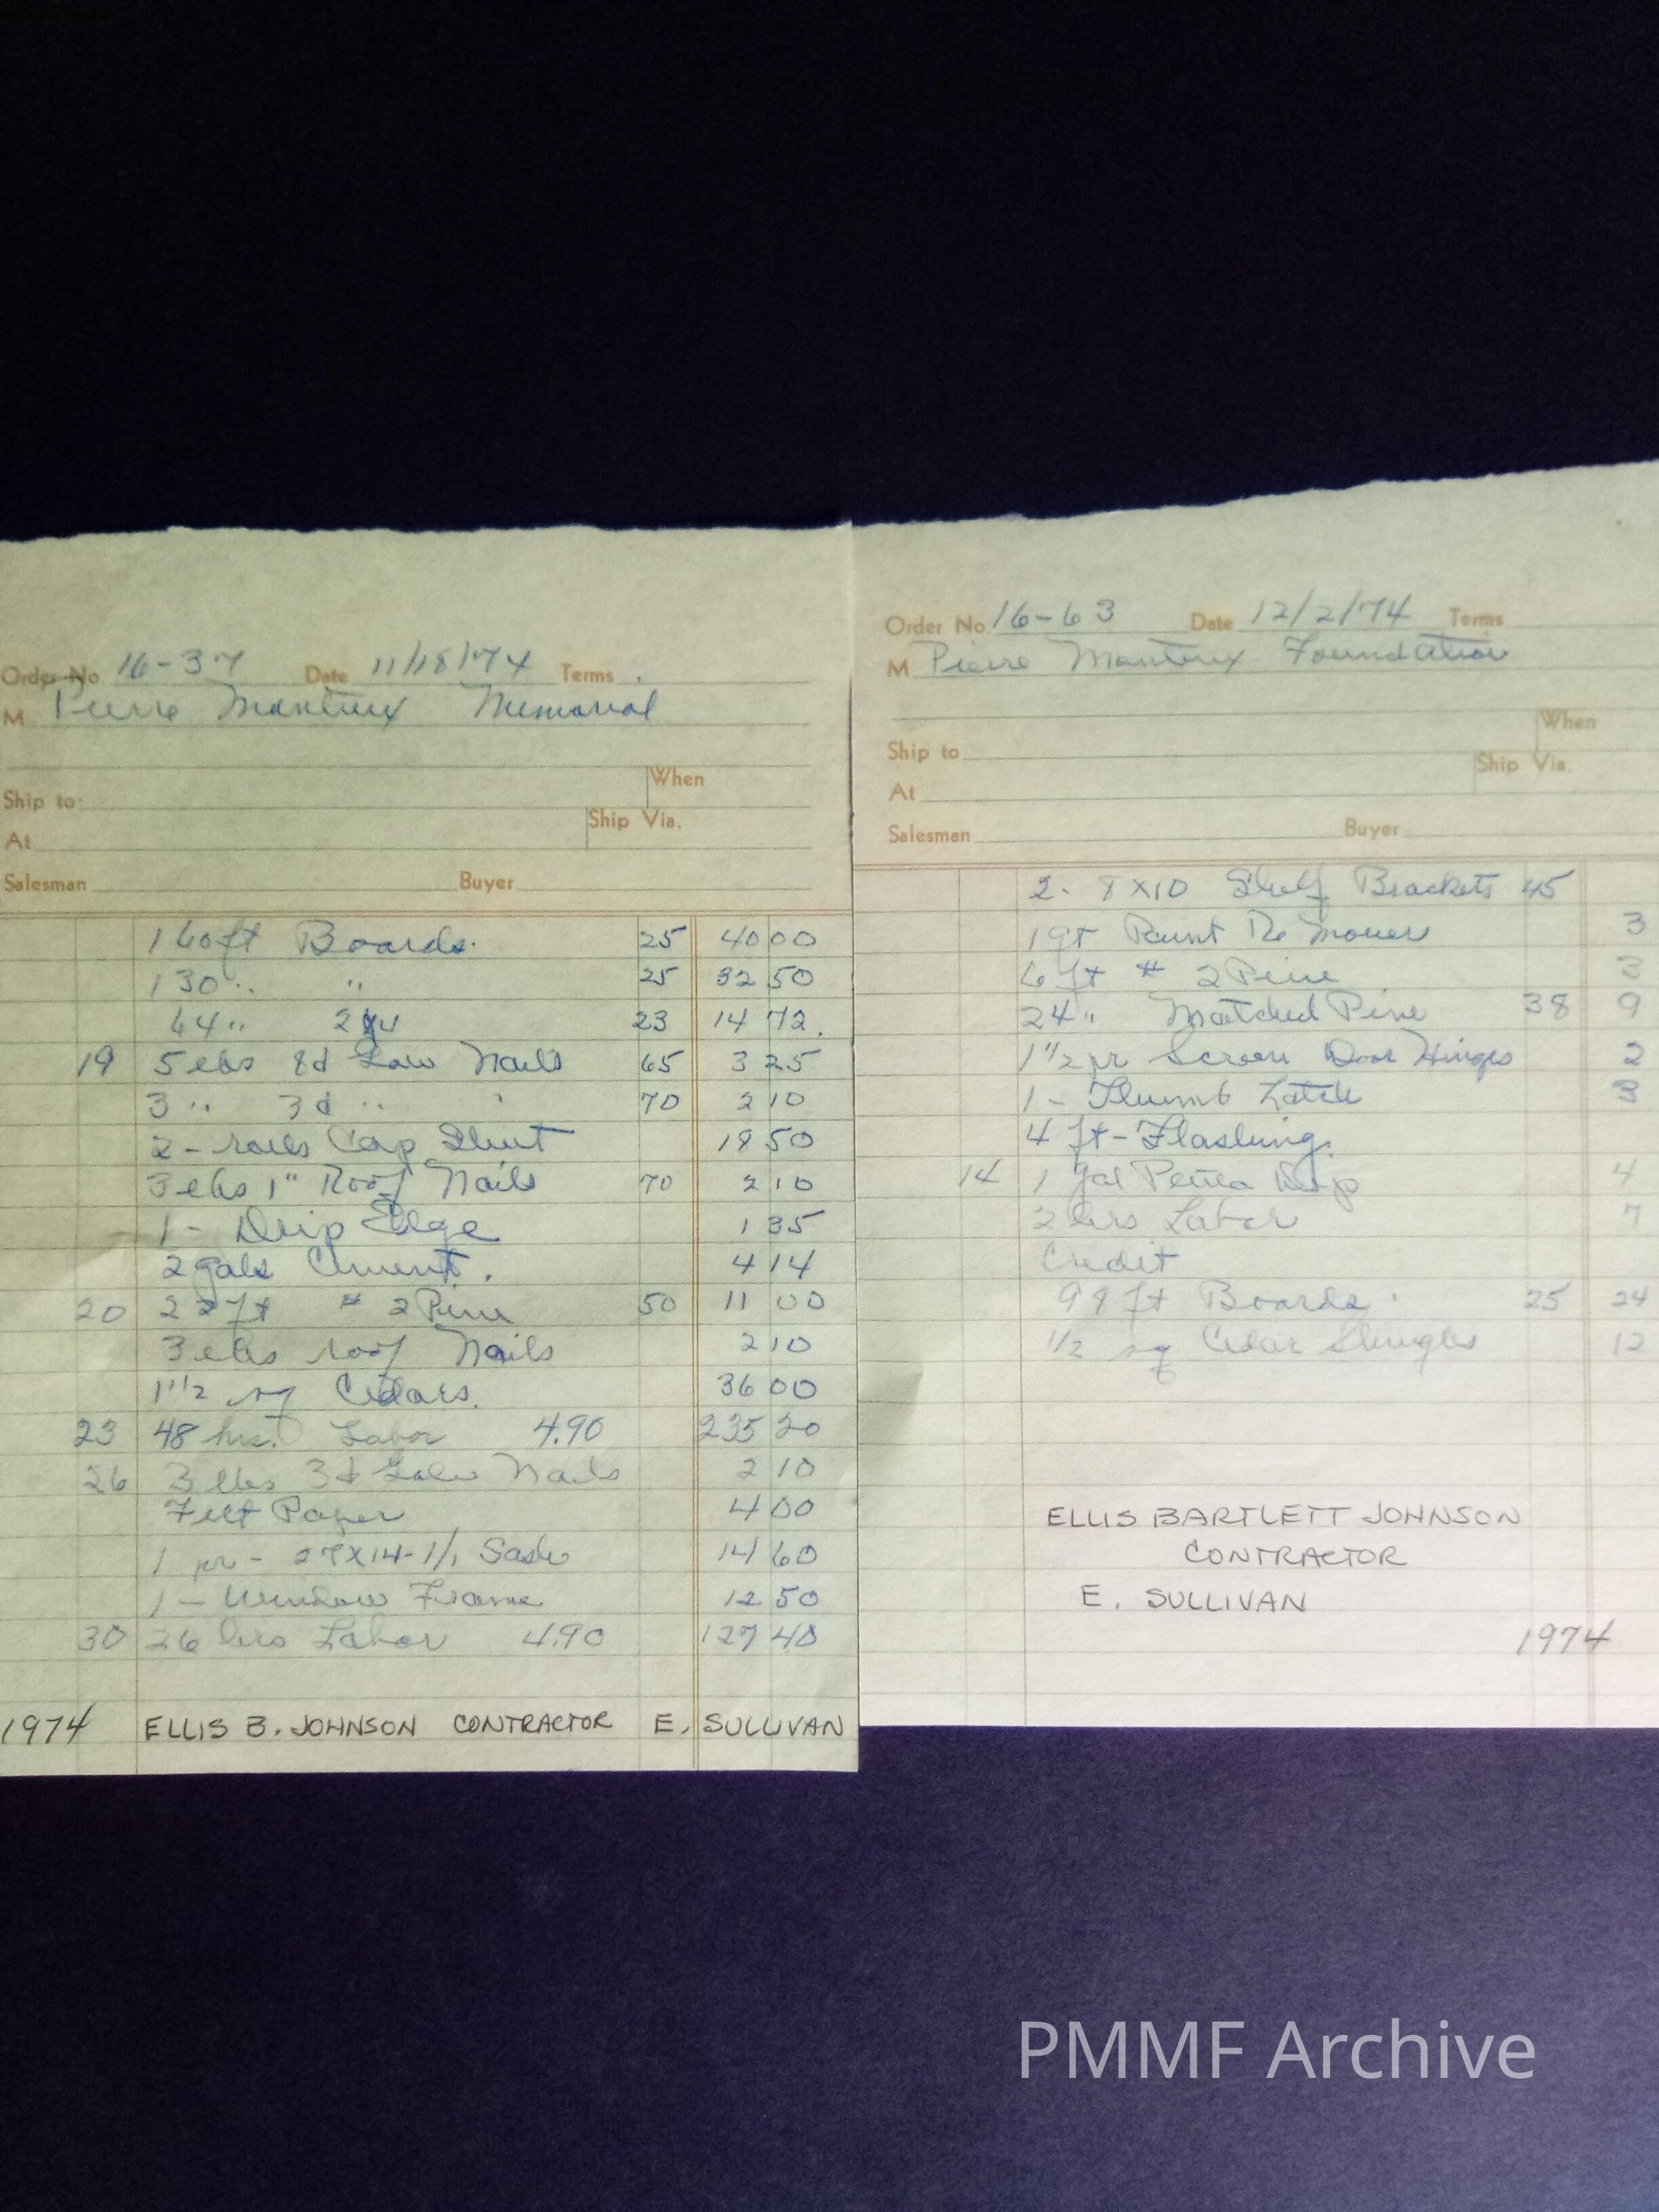 Order No. 16-37 Date 11/18/74 Terms
M Pierre Monteux Memorial
When
Ship to
Ship Via.
At
Salesman Buyer
160 ft Boards. 25 40 00
130 " " 25 32 50
64 " 2x4 23 14 72
19 5 lbs 8d Galv Nails 65 3 25
3 " 3d " " 70 2 10
2 - rolls Cap Sheet 19 50
3 lbs 1" Roof Nails 70 2 10
1 - Drip Edge 1 35
2 gals Cement. 4 14
20 22 ft # 2 Pine 50 11 00
3 lbs roof Nails 2 10
1 1/2 sq Cedars. 36 00
23 48 hrs. Labor 4.90 235 20
26 3 lbs 3d Galv Nails 2 10
Felt Paper 4 00
1 pr - 14-1/1 Sash 14 60
1 - Window Frame 12 50
30 26 hrs Labor 4.90 127 40
1974 ELLIS B. JOHNSON CONTRACTOR E. SULLIVAN
Order No. 16-63 Date 12/2/74 Terms
M Pierre Monteux Foundation
When
Ship to
Ship Via.
At
Salesman Buyer
2 - 8x10 Shelf Brackets 45
1 qt Paint Remover 3
6 ft # 2 Pine 3
24 " Matched Pine 38 9
1 1/2 pr Screen Door Hinges 2
1 - Thumb Latch 3
4 ft - Flashing.
14 1 gal Penta 4
2 hrs Labor 7
Credit
98 ft Boards 25 24
1/2 sq Cedar Shingles 12
ELLIS BARTLETT JOHNSON
CONTRACTOR
E. SULLIVAN
1974
PMMF Archive